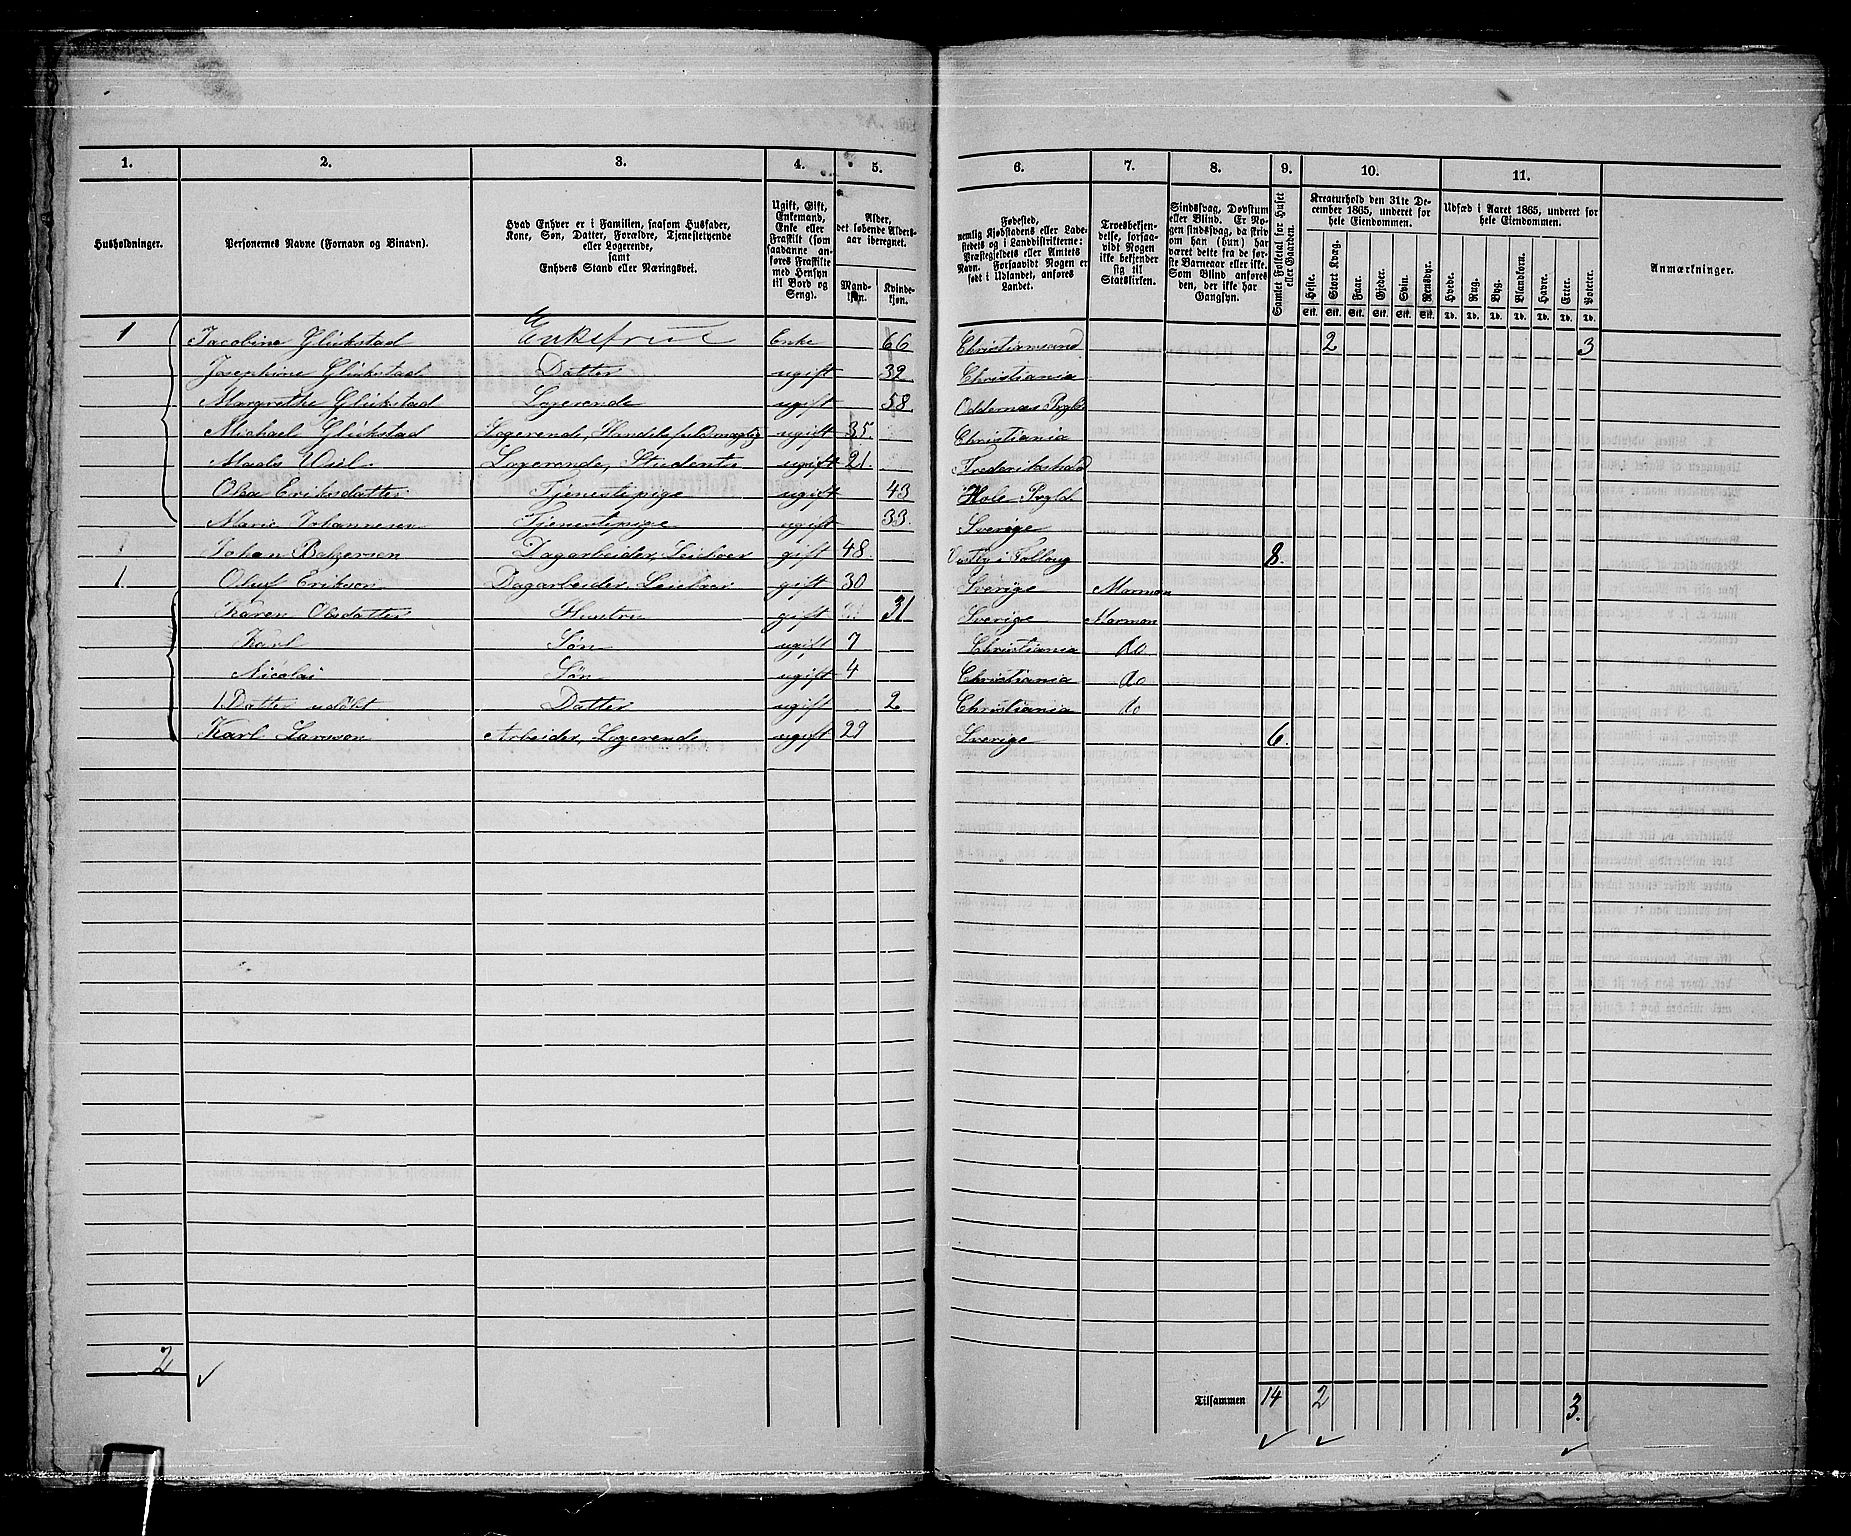 1. 2. 3. 4. 5. 6. 7. 8. 9. 10. 11.
Husholdninger.
Personernes Navne (Fornavn og Binavn).
Hvad Enhver er i Familien, saasom Husfader,
Kone, Søn, Datter, Forældre, Tjenestetyende
eller Logerende,
samt
Enhvers Stand eller Næringsvei.
Ugift, Gift,
Enkemand,
Enke eller
Fraskilt (som
saadanne an-
føres Fraskilte
med Hensyn
til Bord og
Seng).
Alder,
det løbende Alders-
aar iberegnet.
Mand-
kjøn.
Kvinde-
kjøn.
Fødested,
nemlig Kjøbstadens eller Lade-
stedets og i Landdistrikterne:
Præstegjeldets eller Amtets
Navn. Forsaavidt Nogen er
født i Udlandet, anføres
Landet.
Troesbekjen-
delse, forsaa-
vidt Nogen
ikke bekjender
sig til
Statskirken.
Sindssvag, Døvstum
eller Blind. Er No-
gen sindssvag, da skriv
om han (hun) har
været dette fra de før-
ste Barneaar eller ikke.
Som Blind anføres
den, der ikke har
Gangsyn.
Samlet Folketal for Huset
eller Gaarden.
Kreaturhold den 31te De-
cember 1865, underet for
hele Eiendommen.
Heste. Stort Kvæg. Faar. Gjeder. Svin. Rensdyr.
Stk. Stk. Stk. Stk. Stk. Stk.
Udsæd i Aaret 1865, underet for
hele Eiendommen.
Hvede. Rug. Byg. Blandkorn. Havre. Erter. Poteter.
Td. Td. Td. Td. Td. Td. Td.
Anmærkninger.
1 Jacobine Glückstad Enkefrue Enke 66 Christiansand 2 3
Josephine Glückstad Datter ugift 32 Christiania
Margrethe Glückstad Logerende ugift 58 Oddernæs Prgld
Michael Glückstad Logerende, Handelsfuldmægtig ugift 35. Christiania
Mads Wiel Logerende, Student ugift 21. Frederikshald
Olea Eriksdatter Tjenestepige ugift 43 Hole Prgld
Marie Johannesen Tjenestepige ugift 33. Sverige
Johan Balzersen Dagarbeider, Leieboer gift 48. 8.
1. Oluf Erikson Dagarbeider, Leieboer gift 30 Sverige Mormon
Karen Olsdatter Hustru gift 31 Sverige Mormon
Karl Søn ugift 7 Christiania do
Nicolai Søn ugift 4 Christiania do
1 Datter udöbt Datter ugift 2 Christiania do
Karl Larsson Arbeider, Logerende ugift 29 Sverige 6.
2
Tilsammen 14 2 3.